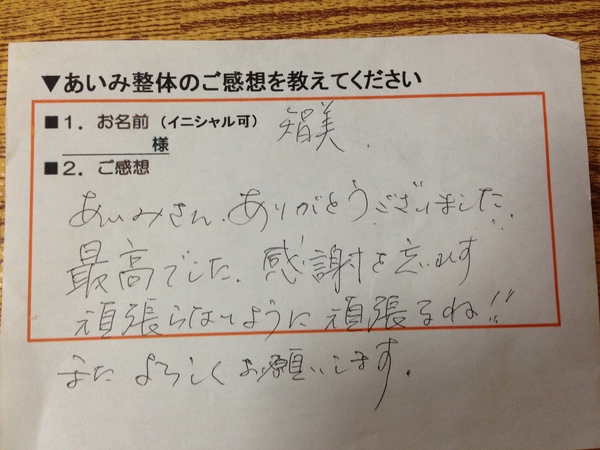 ▼あいみ整体のご感想を教えてください
■1．お名前（イニシャル可）
智美．
様
■2．ご感想
あいみさん、ありがとうございました
最高でした。感謝を忘れず
頑張らなように頑張るね!!
また よろしくお願いします。